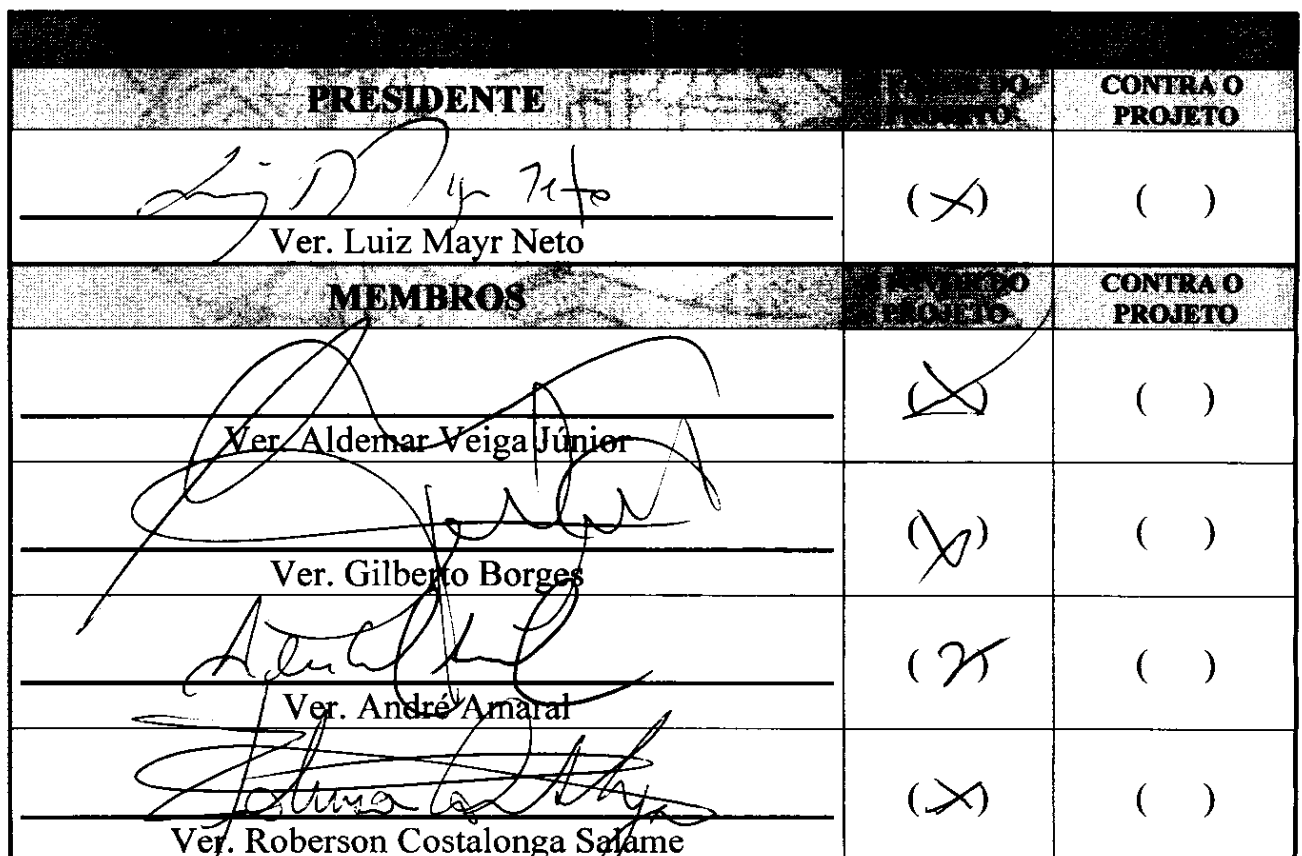 PRESIDENTE
DO PROJETO
CONTRA O PROJETO
Luiz Mayr Neto
(X)
( )
Ver. Luiz Mayr Neto
MEMBROS
DO PROJETO
CONTRA O PROJETO
(X)
( )
Ver. Aldemar Veiga Júnior
(X)
( )
Ver. Gilberto Borges
(X)
( )
Ver. André Amaral
(X)
( )
Ver. Roberson Costalonga Salame